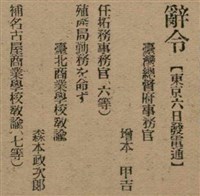 辭令【東京六日發電通】
臺灣總督府事務官
增本 甲吉
任拓務事務官(六等)
殖產局勤務を命ず
臺北商業學校敎諭
森本政次郎
補名古屋商業學校敎諭(七等)